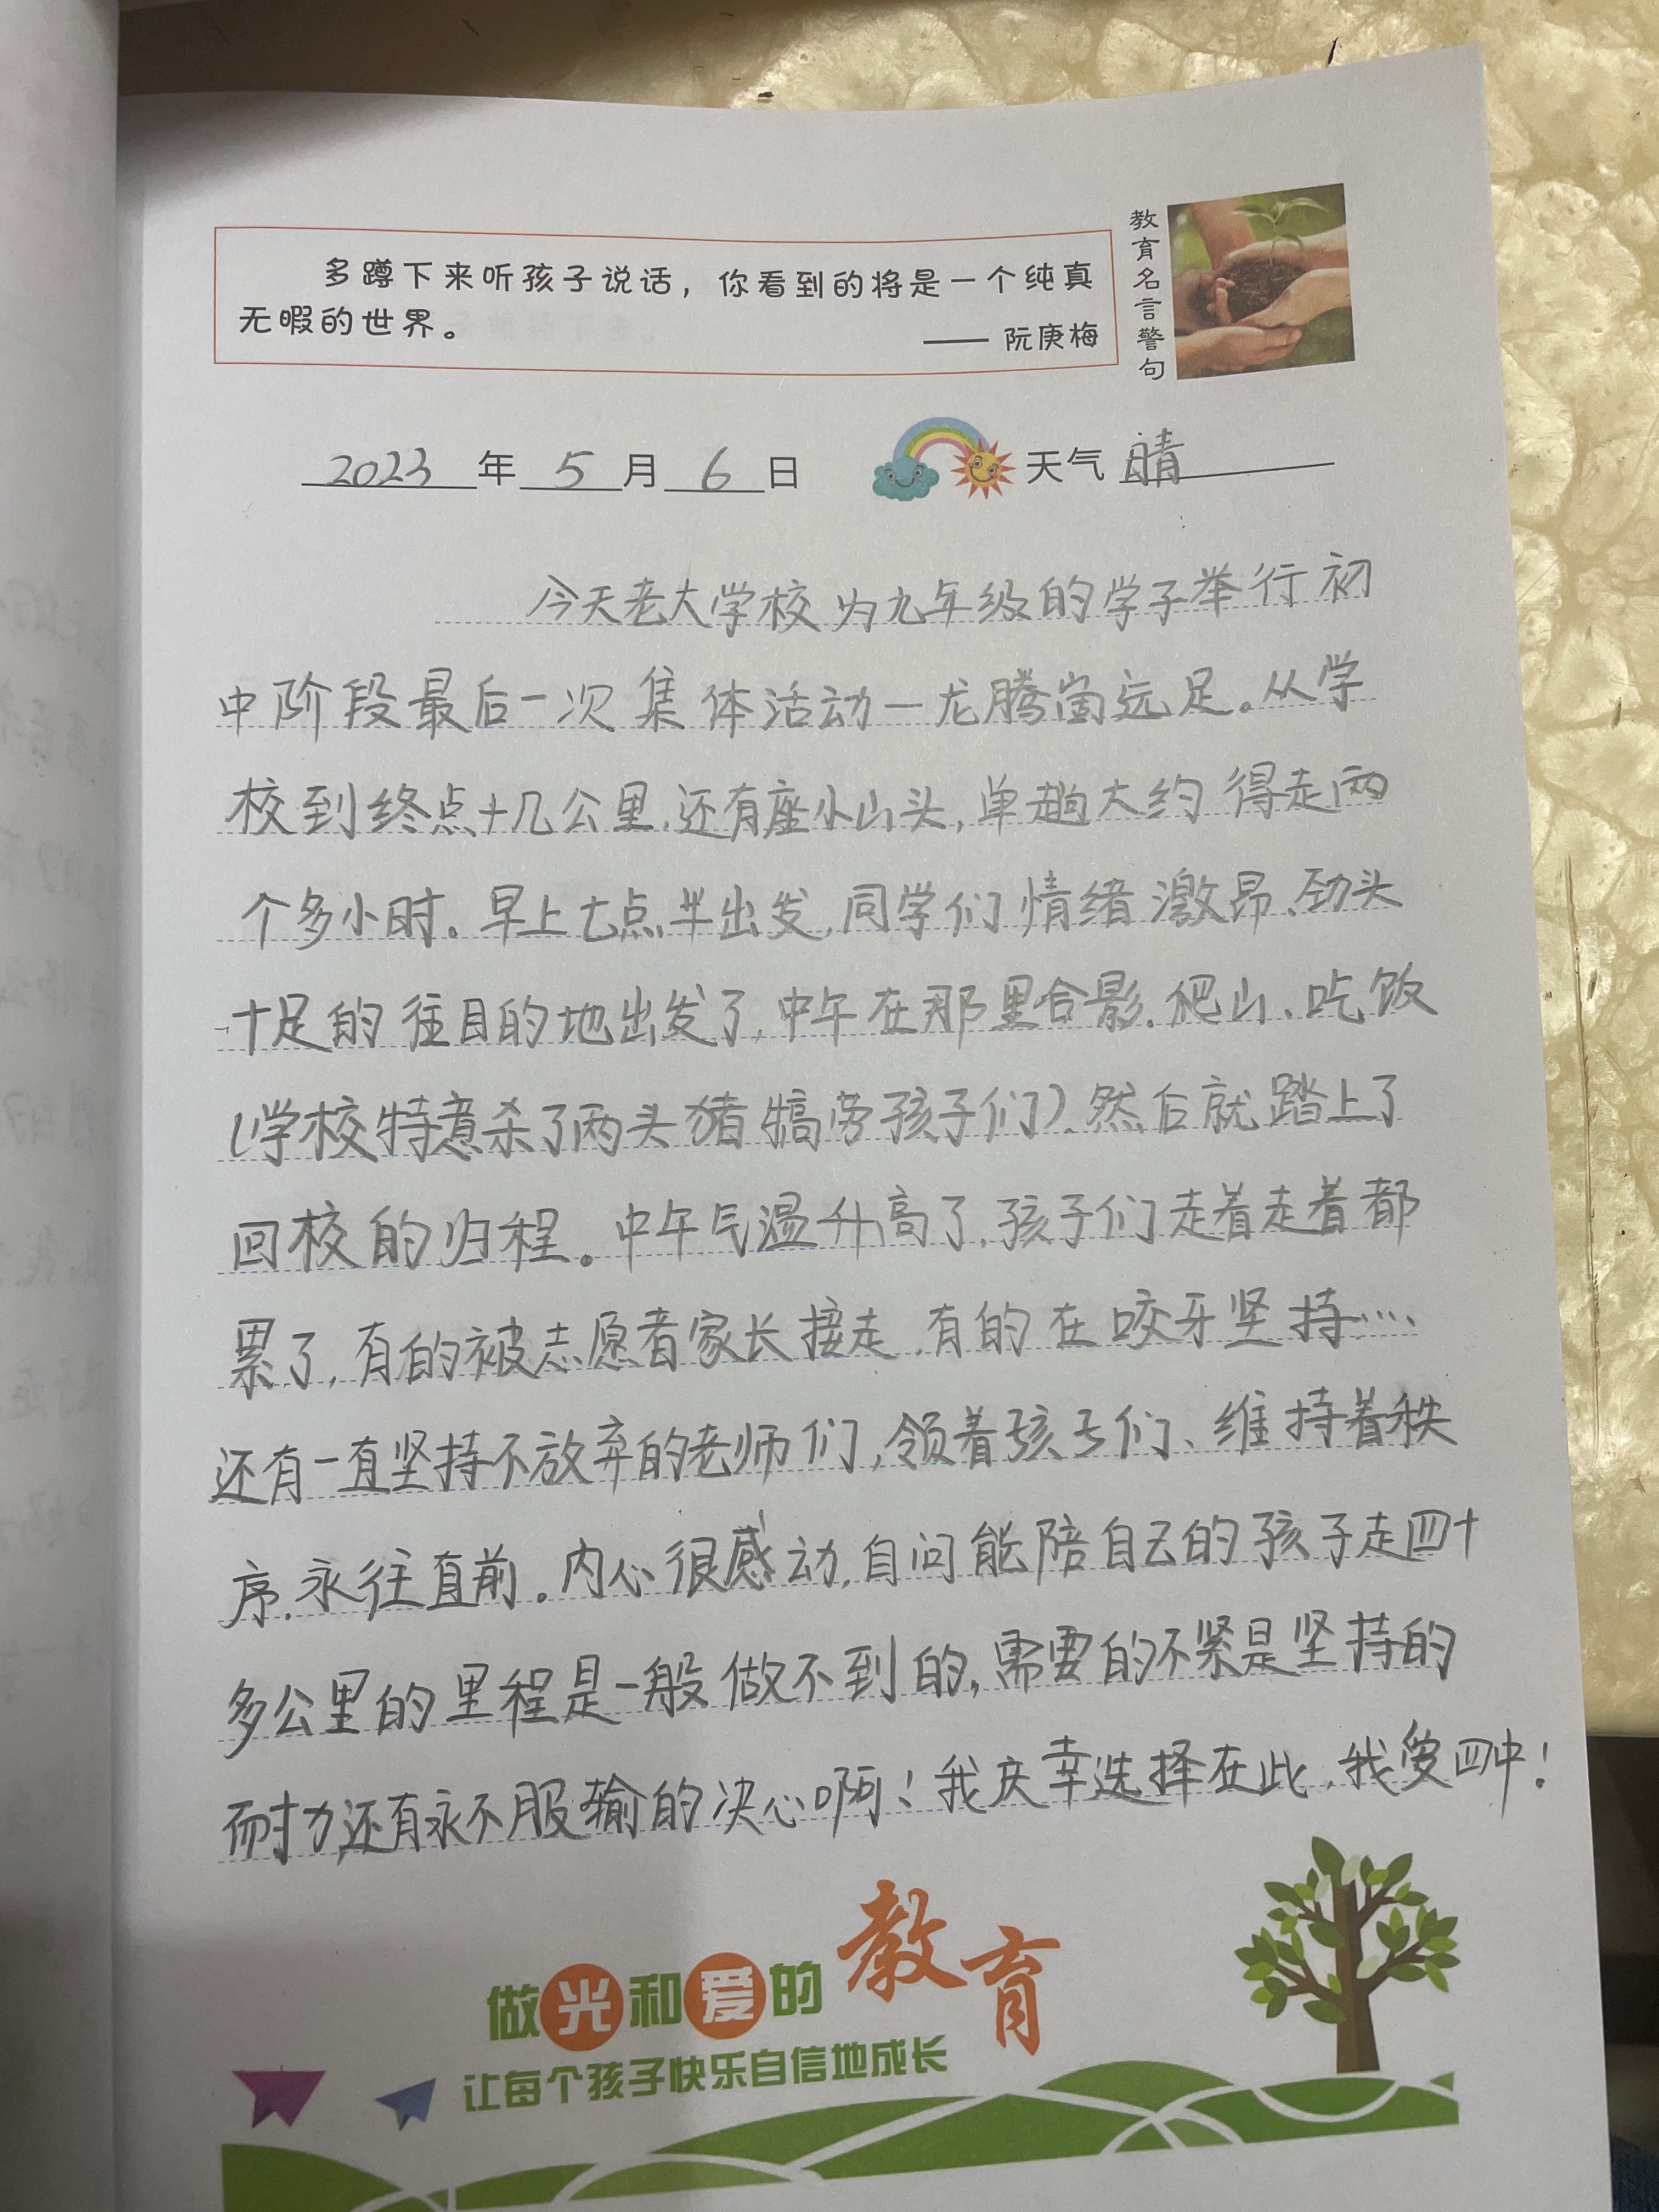 多蹲下来听孩子说话，你看到的将是一个纯真
无暇的世界。
—— 阮庚梅
教育名言警句
2023年5月6日 天气 晴
今天老大学校为九年级的学子举行初
中阶段最后一次集体活动—龙腾崮远足。从学
校到终点十几公里，还有座小山头，单趟大约得走两
个多小时。早上七点半出发，同学们情绪激昂、劲头
十足的往目的地出发了，中午在那里合影、爬山、吃饭
（学校特意杀了两头猪犒劳孩子们）、然后就踏上了
回校的归程。中午气温升高了，孩子们走着走着都
累了，有的被志愿者家长接走，有的在咬牙坚持……
还有一直坚持不放弃的老师们，领着孩子们、维持着秩
序、永往直前。内心很感动，自问能陪自己的孩子走四十
多公里的里程是一般做不到的，需要的不紧是坚持的
耐力，还有永不服输的决心啊！我庆幸选择在此，我爱四中！
做光和爱的教育
让每个孩子快乐自信地成长